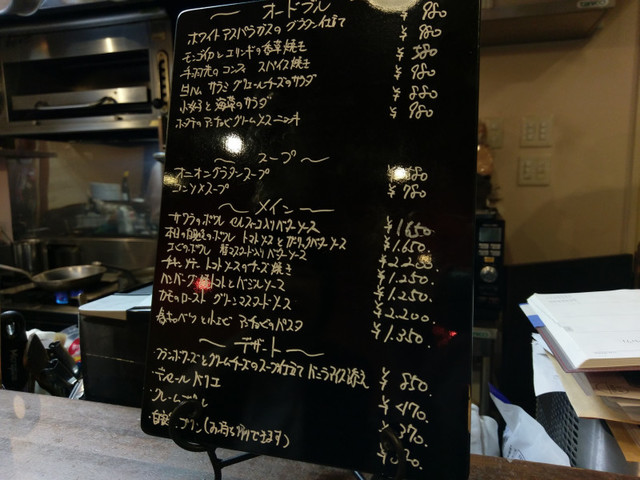 オードブル
ホワイトアスパラガスの グラタン仕立て ¥980
モンゴイカとエリンギの香草焼き ¥980
手羽元のコンフィ スパイス焼き ¥580
生ハム サラミ グリュエールチーズのサラダ ¥980
小えびと海草のサラダ ¥880
ホタテのアンチョビクリームソース ¥980
スープ
オニオングラタンスープ
コンソメスープ ¥780
メイン
サワラのポワレ バターソース ¥1650
本日の白身のポワレ トマトソースとガーリックバターソース ¥1,650.
えびのポワレ 粒マスタード入りバターソース ¥2200
チキンソテー トマトソースのチーズ焼き ¥1,250.
ハンバーグ トマトとバジルソース ¥1,250.
カモのロースト グリーンマスタードソース ¥2,200.
春キャベツと小エビ アンチョビパスタ ¥1,350.
デザート
フランボワーズとクリームチーズのスープ仕立て バニラアイス添え ¥850.
・テリーヌ ¥470.
・クレーム ¥370.
・自家製プリン(お持ち帰りできます)